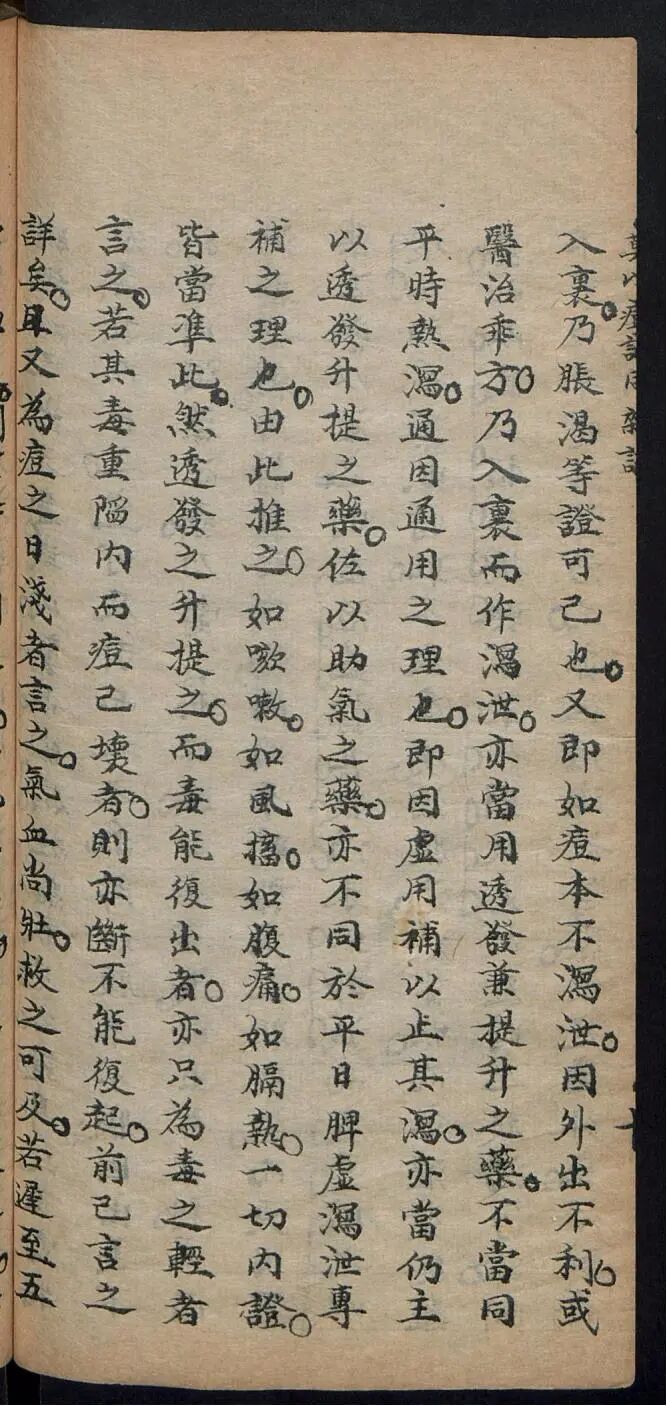 入裏。乃脹渴等證可已也。又即如痘本不瀉泄。因外出不利。或
醫治乖方。乃入裏而作瀉泄。亦當用透發兼提升之藥。不當同
平時熱瀉。通因通用之理也。即因虛用補以止其瀉。亦當仍主
以透發升提之藥。佐以助氣之藥。亦不同於平日脾虛瀉泄專
補之理也。由此推之。如嗽。如風搐。如腹痛。如膈熱。一切內證。
皆當準此。然透發之升提之。而毒能復出者。亦只為毒之輕者
言之。若其毒重陷內而痘已壞者。則亦斷不能復起。前已言之
詳矣。且又為痘之日淺者言之。氣血尚壯。救之可及。若遲至五